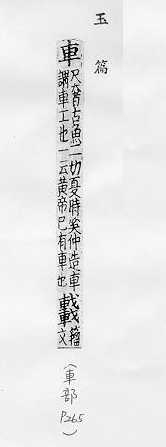 玉篇
車尺奢古魚二切夏時奚仲造車
謂車工也一云黃帝已有車也䡴籀文
(車部P265)